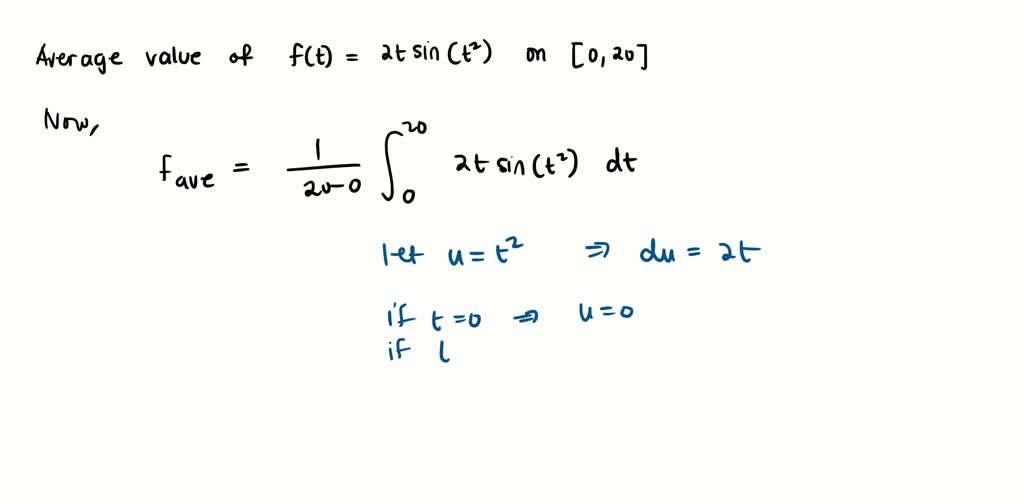 Average value of f(t) = 2t sin (t²) on [0, 20]
Now,
f_ave = 1/(20-0) ∫₀²⁰ 2t sin (t²) dt
let u = t² ⇒ du = 2t
if t = 0 ⇒ u = 0
if